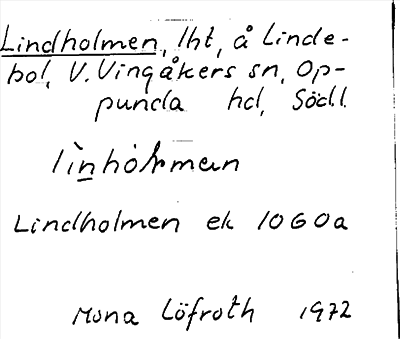 Lindholmen, lht, å Linde-
bol, V. Vingåkers sn, Op-
punda hd, Södl.
Lindholmen ek 10G0a
Mona Löfroth 1972